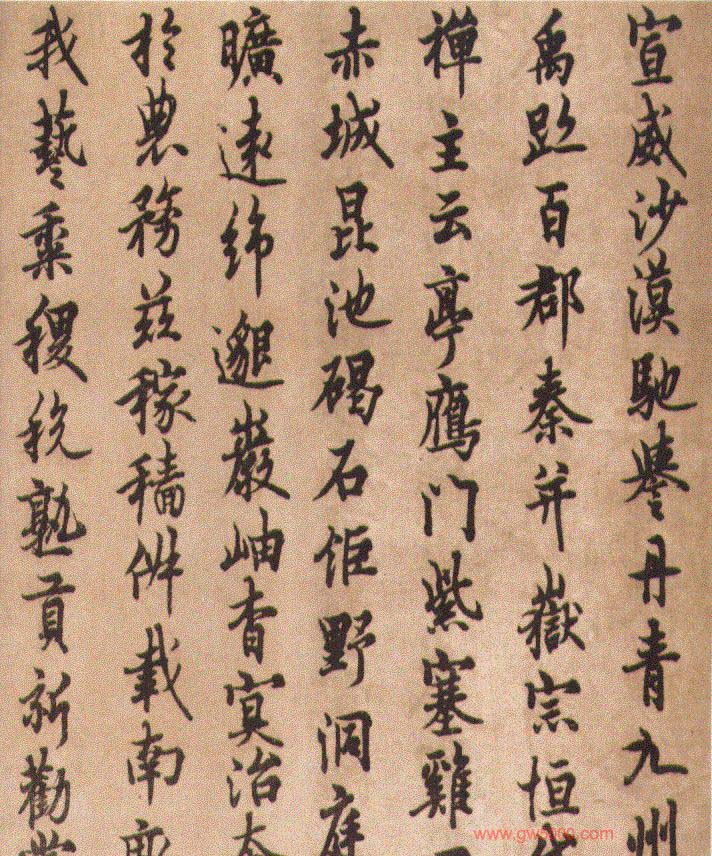 宣威沙漠馳譽丹青九州
禹跡百郡秦并嶽宗恒
禪主云亭鴈门紫塞雞
赤城昆池碣石鉅野洞庭
曠遠綿邈巖岫杳冥治本
於農務茲稼穡俶載南畝
我藝黍稷稅熟貢新勸賞